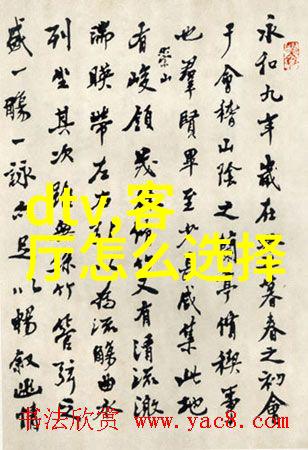 永和九年歲在
暮春之初會
于會稽山陰之蘭亭脩稧事
也羣賢畢至少
咸集此地
有崇山峻領茂
又有清流激
湍暎帶左右
為流觴曲水
列坐其次雖無絲竹管弦之
盛一觴一詠亦足以暢敘幽情
dtv,客
厅怎么选择
书法欣赏 www.yac8.com